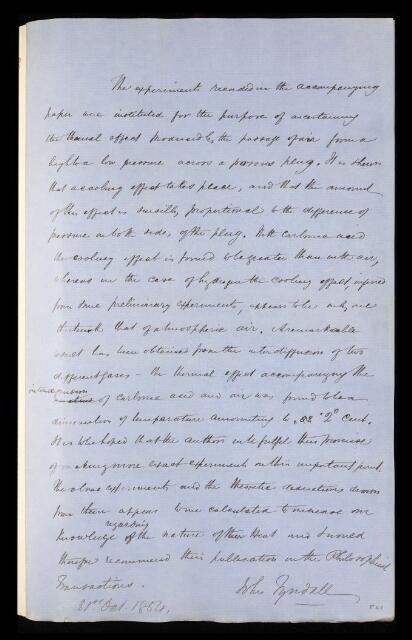 The experiments recorded in the accompanying
paper were instituted for the purpose of ascertaining
the thermal effect produced by the passage of air from a
high to a low pressure across a porous plug. It is shown
that a cooling effect takes place, and that the amount
of this effect is sensibly proportional to the difference of
pressure on both sides of the plug. With carbonic acid
the cooling effect is found to be greater than with air,
whereas in the case of hydrogen the cooling effect, inferred
from some preliminary experiments, appears to be only one
thirteenth that of atmospheric air. A remarkable
result has been obtained from the interdiffusion of two
different gases - the thermal effect accompanying the
interdiffusion
of carbonic acid and air was found to be a
diminution of temperature amounting to
It is to be hoped that the authors will fulfil their promise
of making more exact experiments on this important point.
The above experiments and the theoretic deductions drawn
from them appear to me calculated to increase our
regarding
knowledge the nature of Heat and I would
therefore recommend their publication in the Philosophical
Transactions.
John Tyndall
31st Oct. 1854.